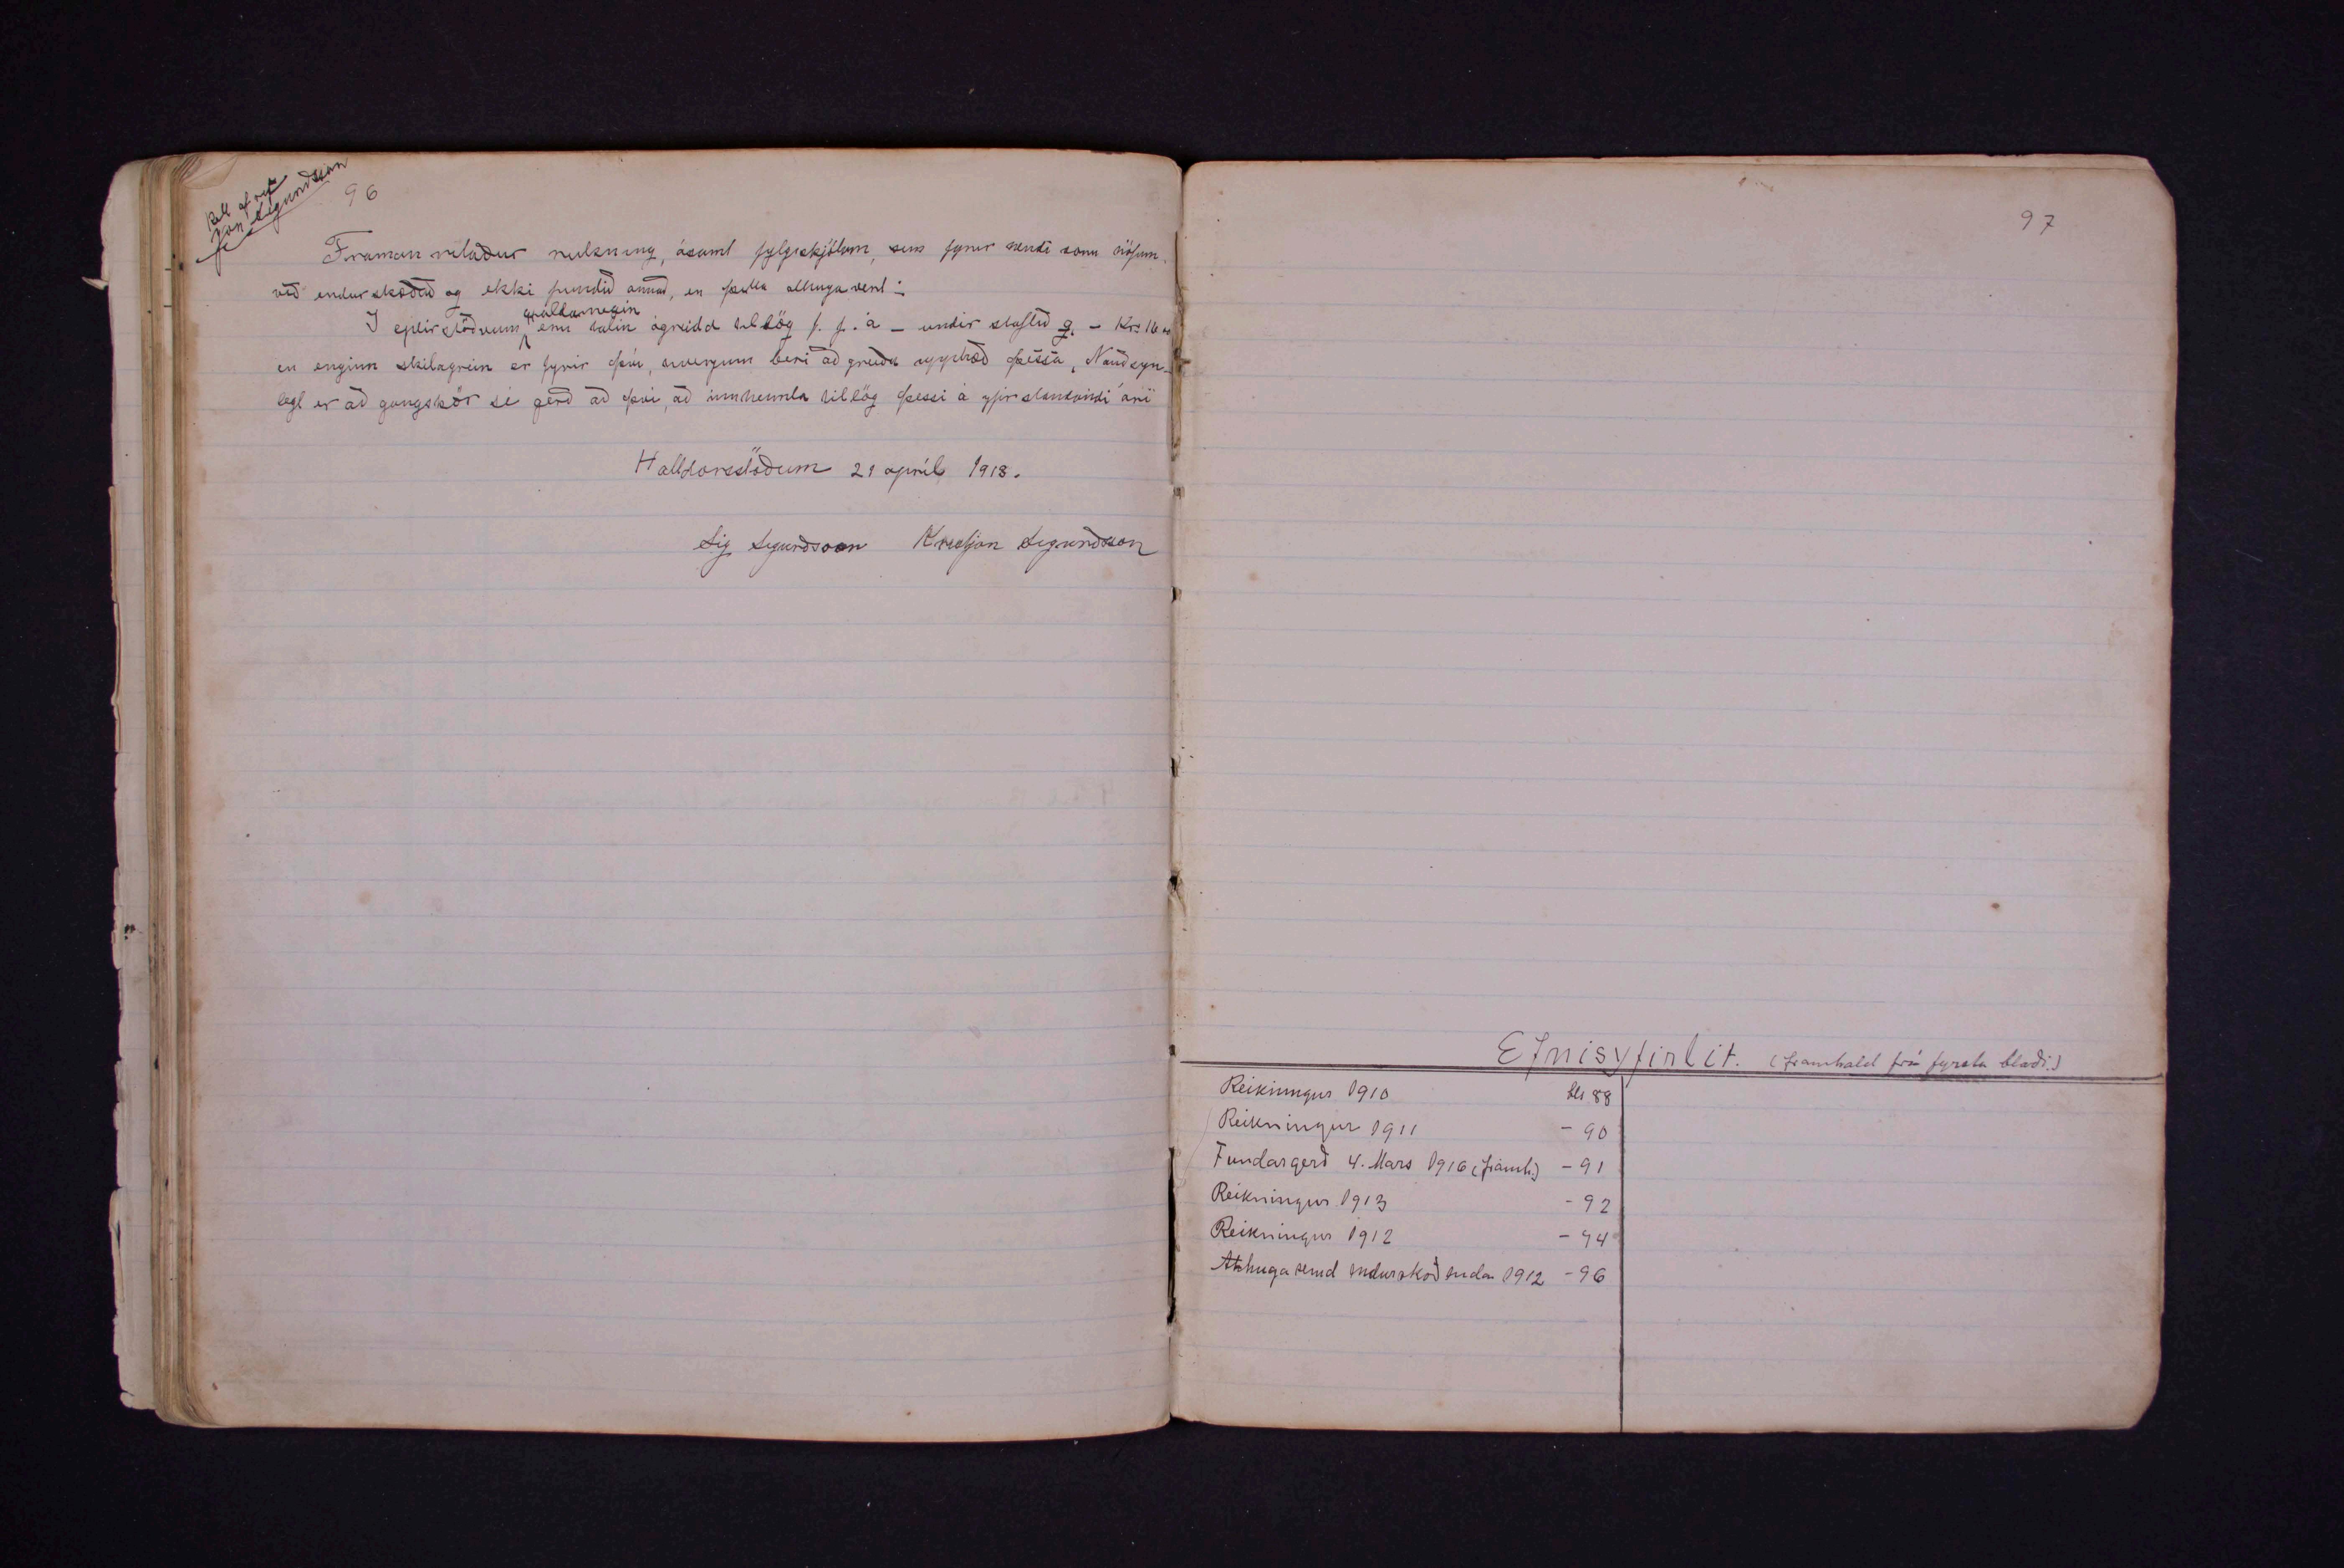 96
Jón Sigurðsson
Framan ritaður reikning, ásamt fylgiskjölum, sem fyrir hendi voru höfum
við endurskoðað og ekki fundið annað, en þetta athugavert:
gjaldamegin
Í eptirstöðvum eru talin ógreidd tillög f. f. á – undir staflið g. – Kr: 16 00
en enginn skilagrein er fyrir því, hverjum beri að greiða upphæð þessa, Nauðsyn-
legt er að gangskör sé gerð að því, að innheimta tillög þessi á yfirstandandi ári
Halldorsstöðum 21 apríl 1918.
Sig Sigurdsson Kristjon Sigurdsson
97
Efnisyfirlit. (framhald frá fyrsta blaði.)
Reikningur 1910 bls 88
Reikningur 1911 – 90
Fundargerð 4. Mars 1916 (framh.) – 91
Reikningur 1913 – 92
Reikningur 1912 – 94
Athugasemd endurskoðenda 1912 – 96